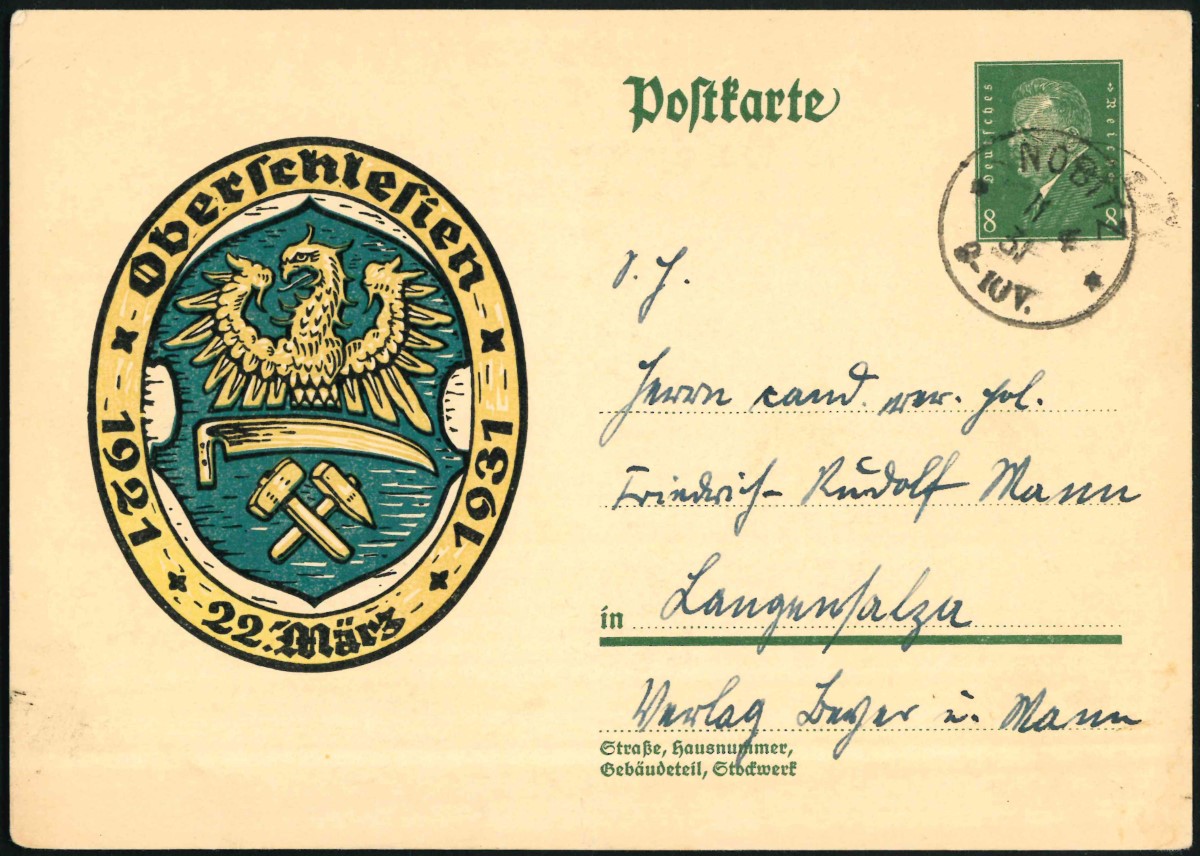 Postkarte
Deutsches Reich
8 8
NOBITZ
11 4
31
9-10V.
Oberschlesien
1921 1931
22. März
S. H.
Herrn cand. rer. pol.
Friedrich-Rudolf Mann
in Langensalza
Verlag Beyer u. Mann
Straße, Hausnummer,
Gebäudeteil, Stockwerk